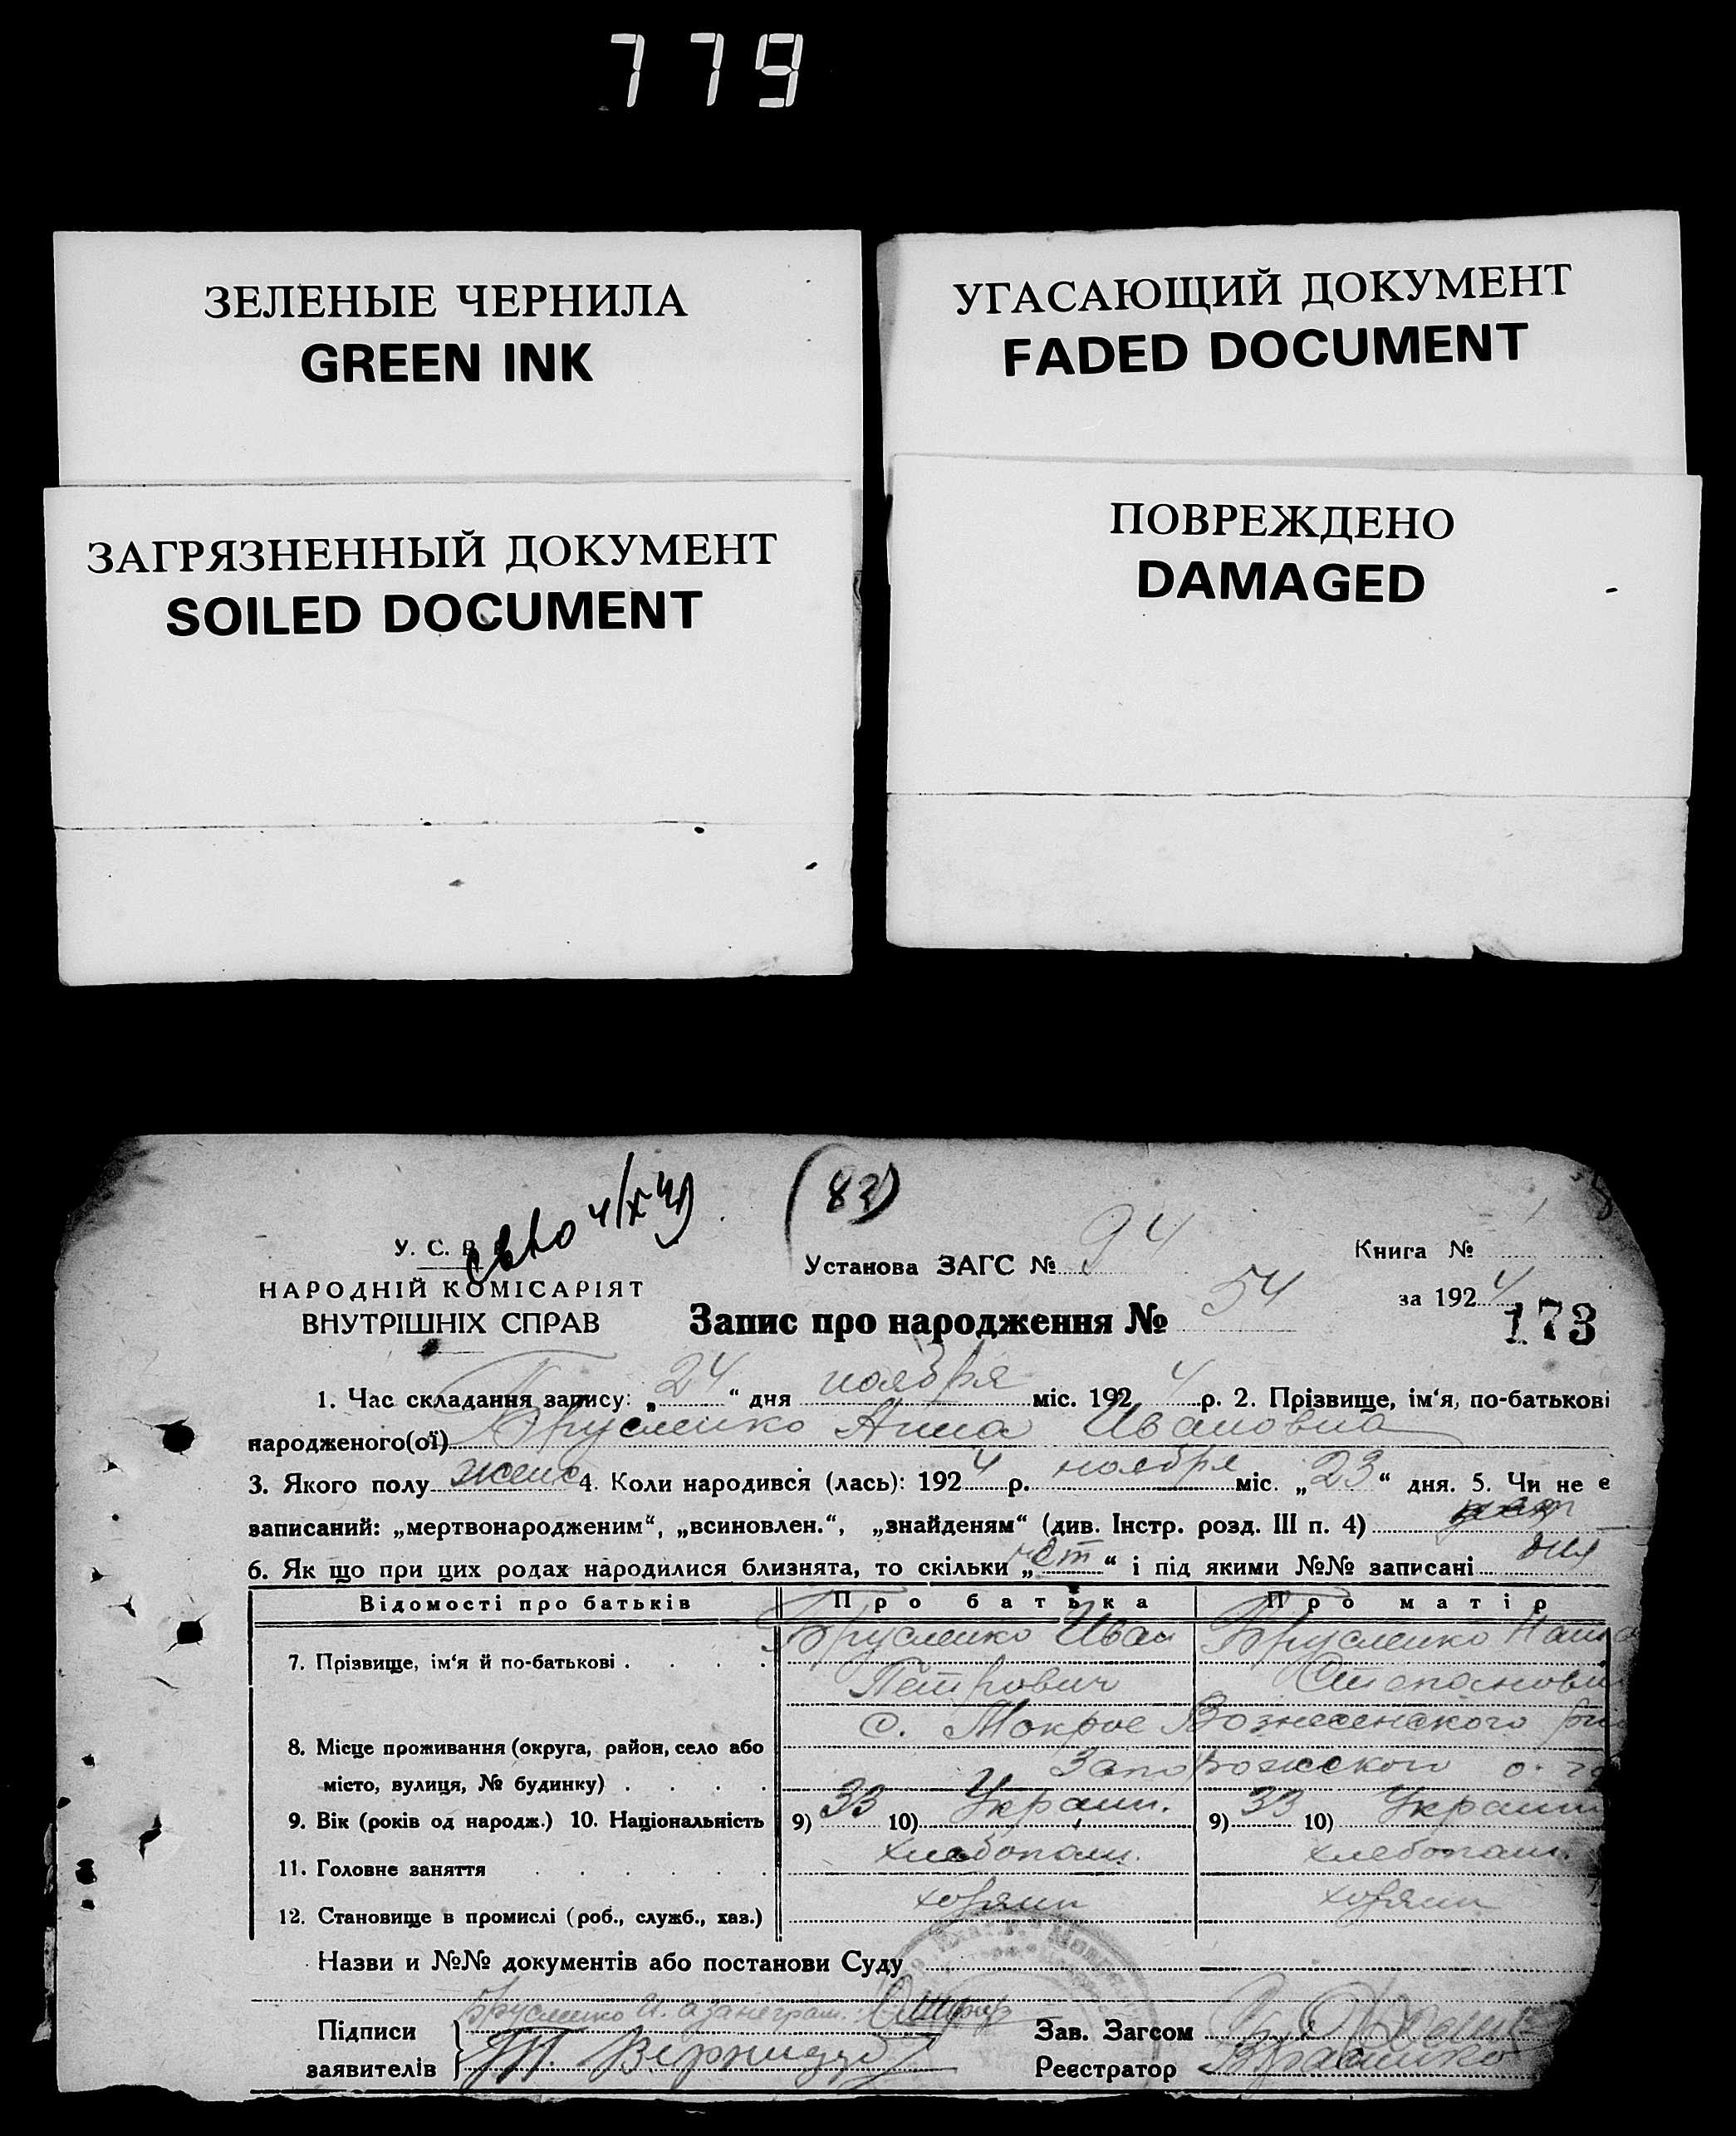 779
ЗЕЛЕНЫЕ ЧЕРНИЛА
GREEN INK
УГАСАЮЩИЙ ДОКУМЕНТ
FADED DOCUMENT
ЗАГРЯЗНЕННЫЙ ДОКУМЕНТ
SOILED DOCUMENT
ПОВРЕЖДЕНО
DAMAGED
(83)
У. С. Р.
НАРОДНІЙ КОМІСАРІЯТ
ВНУТРІШНІХ СПРАВ
Установа ЗАГС № 94
Книга №
за 1924
Запис про народження № 54
173
1. Час складання запису: „24“ дня ноября міс. 1924 р. 2. Прізвище, ім‘я, по-батькові
народженого(ої) Брусленко Анна Ивановна
3. Якого полу женс 4. Коли народився (лась): 1924 р. ноября міс. „23“ дня. 5. Чи не є
записаний: „мертвонародженим“, „всиновлен.“, „знайденям“ (див. Інстр. розд. III п. 4)
6. Як що при цих родах народилися близнята, то скільки „ “ і під якими №№ записані
Відомості про батьків Про батька Про матір
7. Прізвище, ім‘я й по-батькові . . . . Брусленко Иван Брусленко
Петрович Степановн
с. Мокрое Вознесенского
8. Місце проживання (округа, район, село або
Запорожского о.
місто, вулиця, № будинку) . . . .
9. Вік (років од народж.) 10. Національність 9) 33 10) Украин. 9) 33 10) Украин
11. Головне заняття . . . . . . хлебопаш. хлебопаш.
12. Становище в промислі (роб., служб., хаз.) хозяин хозяин
Назви и №№ документів або постанови Суду
Брусленко И. а за неграм.
Підписи
заявителів
Зав. Загсом
Реєстратор